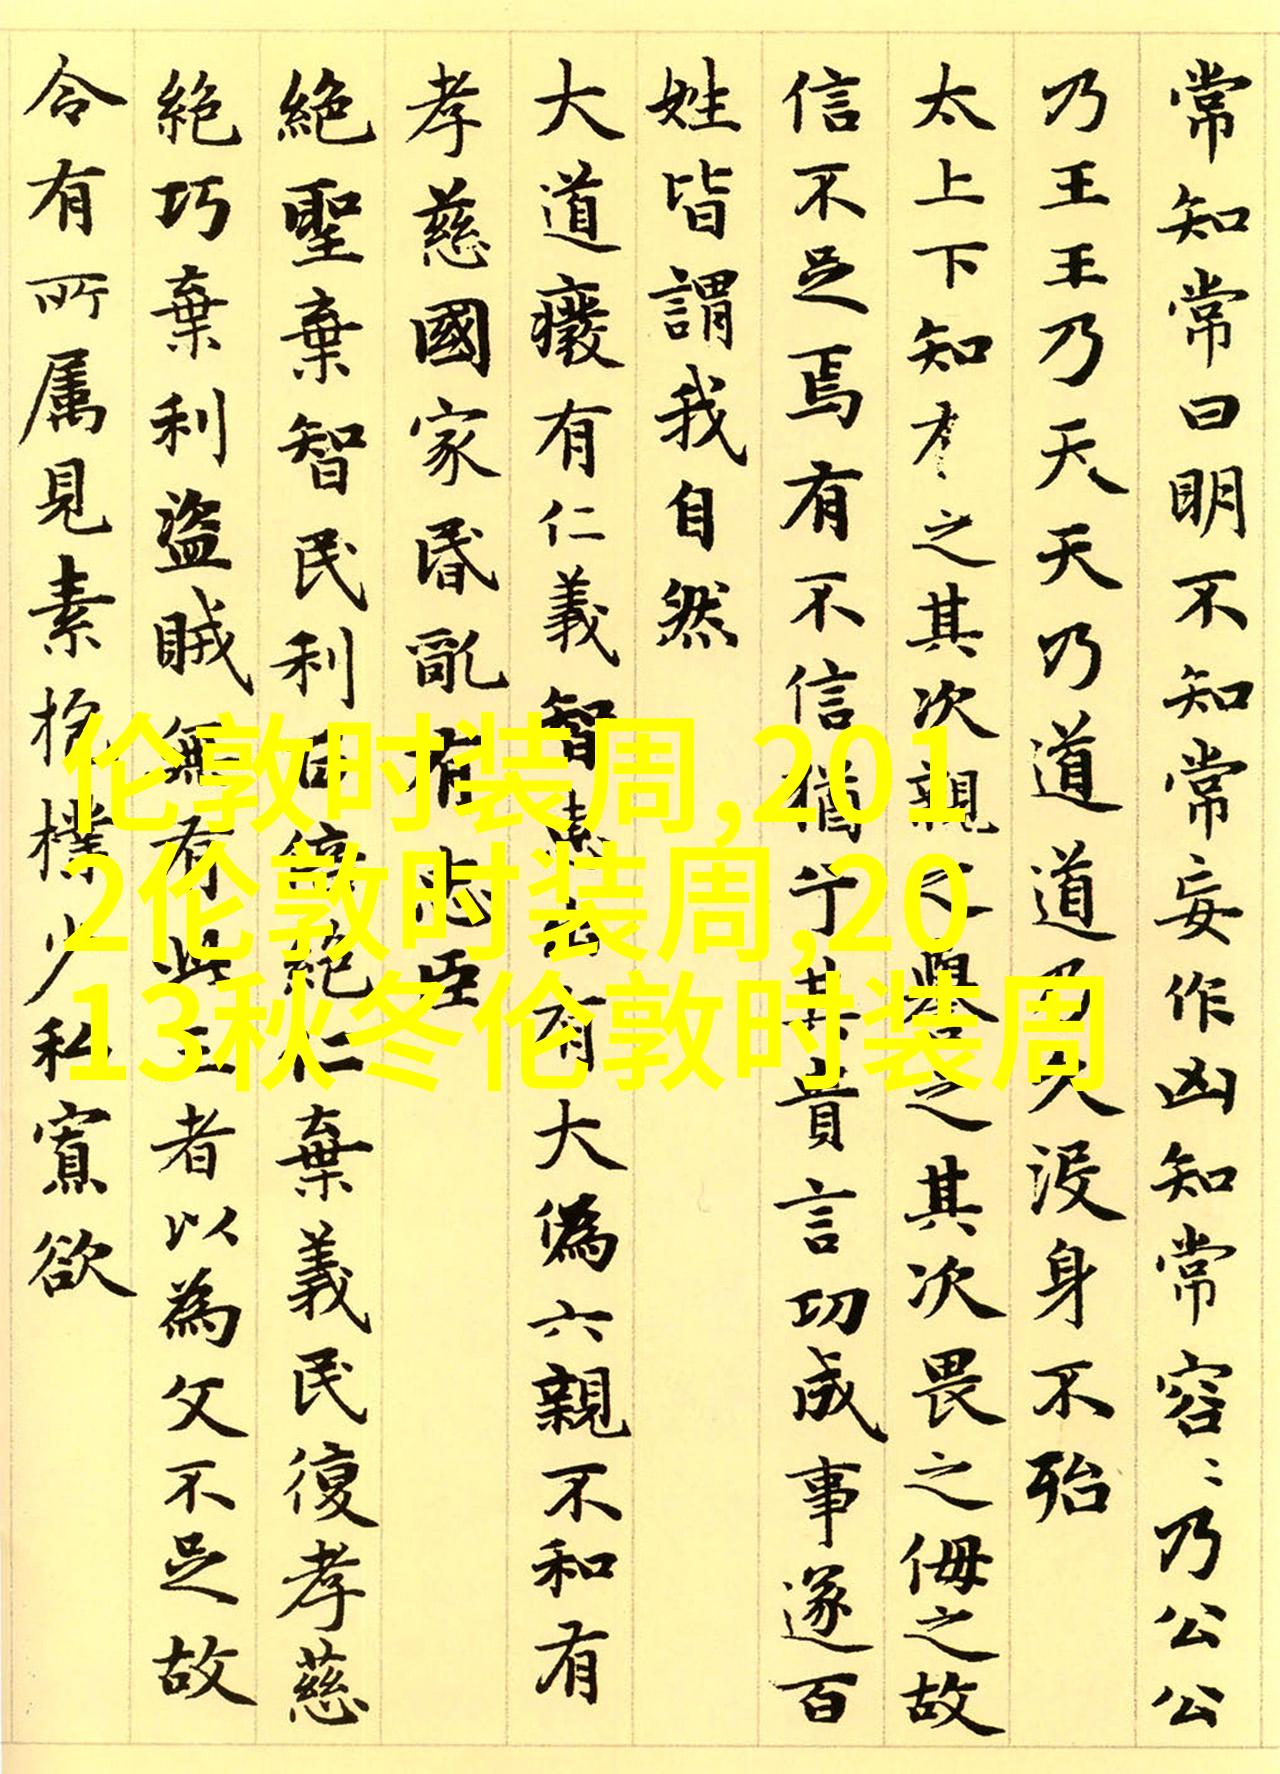 常知常曰明不知常妄作凶知常容〻乃公公
乃王王乃天天乃道道乃久没身不殆
太上下知有之其次親之譽之其次畏之侮之故
信不足焉有不信猶兮其貴言功成事遂百
姓皆謂我自然
大道癈有仁義智惠出有大偽六親不和有
孝慈國家昬亂有忠臣
絶聖棄智民利百倍絶仁棄義民復孝慈
絶巧棄利盗賊無有此三者以為文不足故
令有所属見素抱樸少私寡欲
伦敦时装周,201
2伦敦时装周,20
13秋冬伦敦时装周